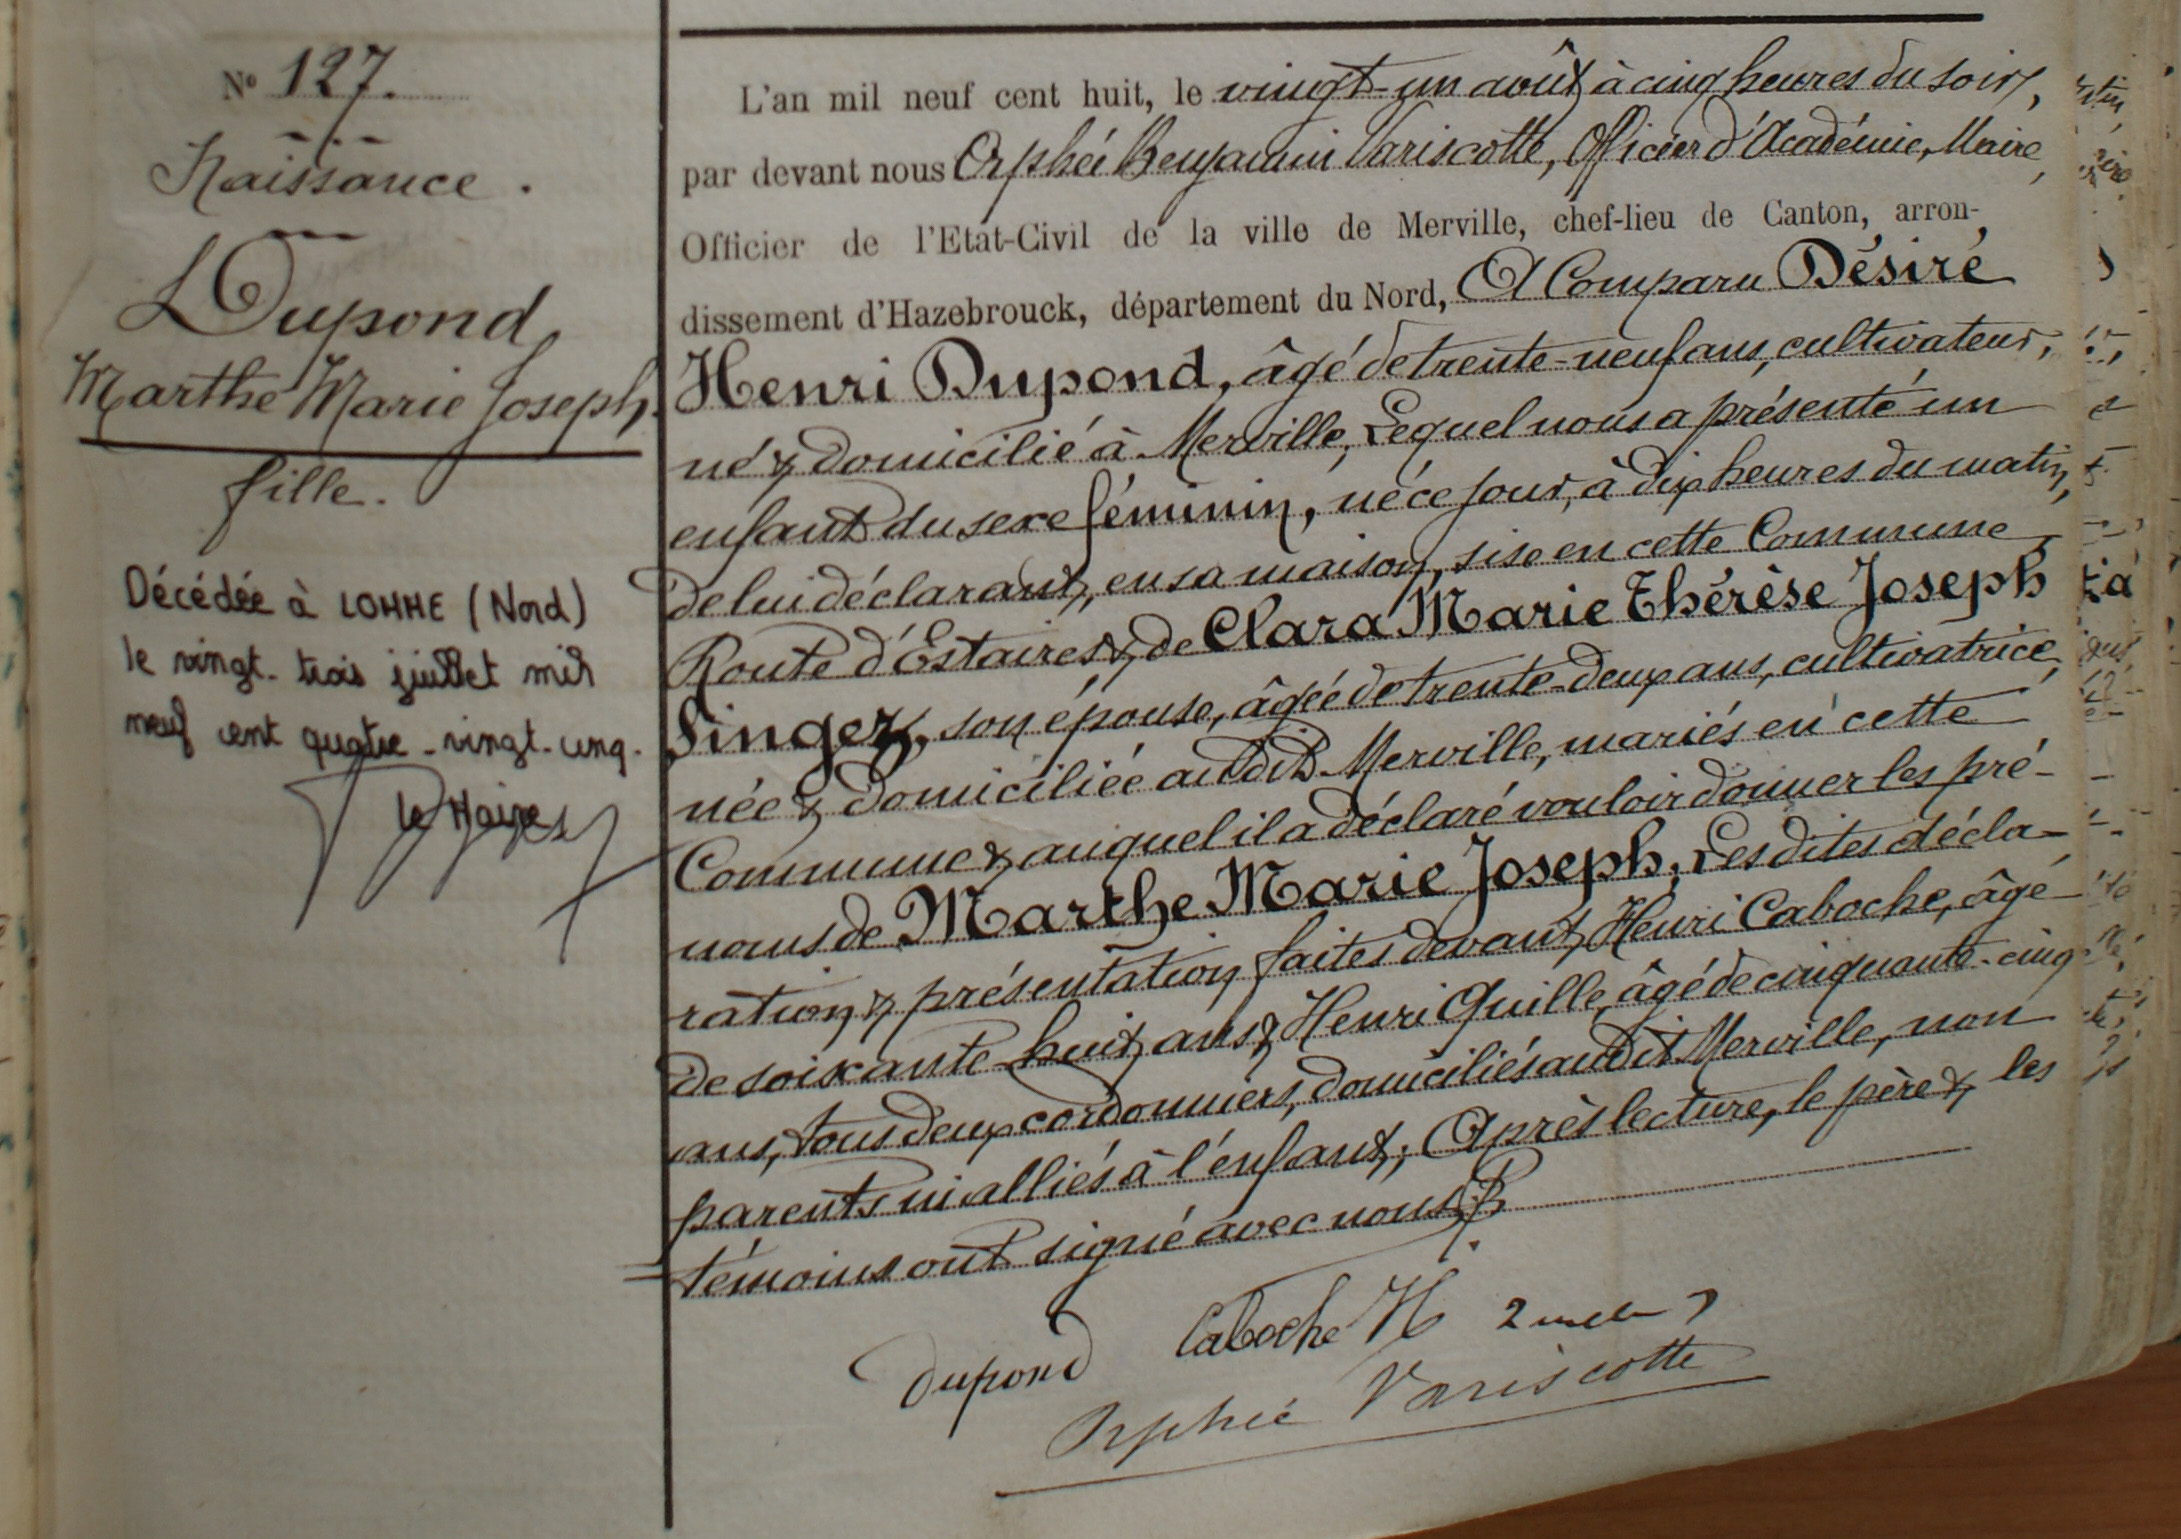 N° 127.
Naissance.
Dupond,
Marthe Marie Joseph.
fille.
Décédée à LOMME (Nord)
le vingt-trois juillet mil
neuf cent quatre-vingt-cinq.
le Maire
L'an mil neuf cent huit, le vingt-un août à cinq heures du soir,
par devant nous Orphée Benjamin Variscotte, Officier d'Académie, Maire,
Officier de l'Etat-Civil de la ville de Merville, chef-lieu de Canton, arron-
dissement d'Hazebrouck, département du Nord, A Comparu Désiré
Henri Dupond, âgé de trente-neuf ans, cultivateur,
né & domicilié à Merville, Lequel nous a présenté un
enfant du sexe féminin, né ce jour, à dix heures du matin,
de lui déclarant, en sa maison, sise en cette Commune,
Route d'Estaires, & de Clara Marie Thérèse Joseph
Singez, son épouse, âgée de trente-deux ans, cultivatrice,
née & domiciliée audit Merville, mariés en cette
Commune & auquel il a déclaré vouloir donner les pré-
noms de Marthe Marie Joseph; Les dites décla-
ration & présentation faites devant Henri Caboche, âgé
de soixante-huit ans & Henri Quille, âgé de cinquante-cinq
ans, tous deux cordonniers, domiciliés audit Merville, non
parents ni alliés à l'enfant; Après lecture, le père & les
témoins ont signé avec nous.
Dupond Caboche H
Orphée Variscotte